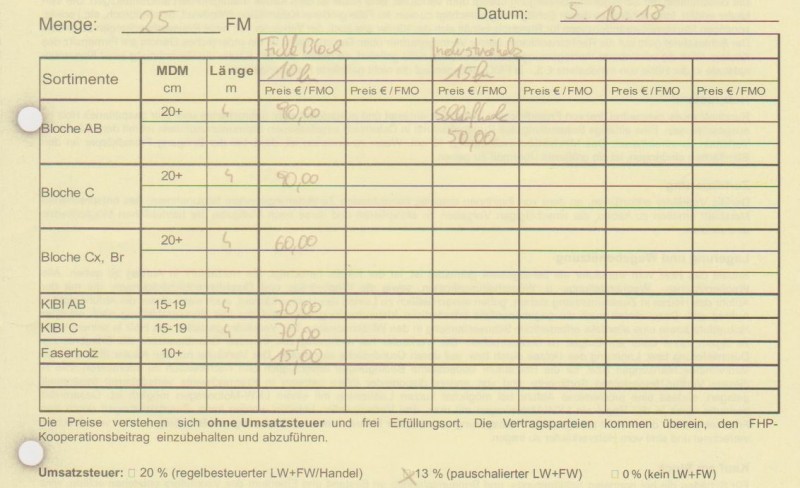 Menge: 25 FM
Datum: 5.10.18
Industrieholz
10fm 15fm
Sortimente MDM cm Länge m Preis €/FMO Preis €/FMO Preis €/FMO Preis €/FMO Preis €/FMO Preis €/FMO
Bloche AB 20+ 4 90,00
50,00
Bloche C 20+ 4 90,00
Bloche Cx, Br 20+ 4 60,00
KIBI AB 15-19 4 70,00
KIBI C 15-19 4 70,00
Faserholz 10+ 15,00
Die Preise verstehen sich ohne Umsatzsteuer und frei Erfüllungsort. Die Vertragsparteien kommen überein, den FHP-
Kooperationsbeitrag einzubehalten und abzuführen.
Umsatzsteuer: □ 20 % (regelbesteuerter LW+FW/Handel) ☒ 13 % (pauschalierter LW+FW) □ 0 % (kein LW+FW)